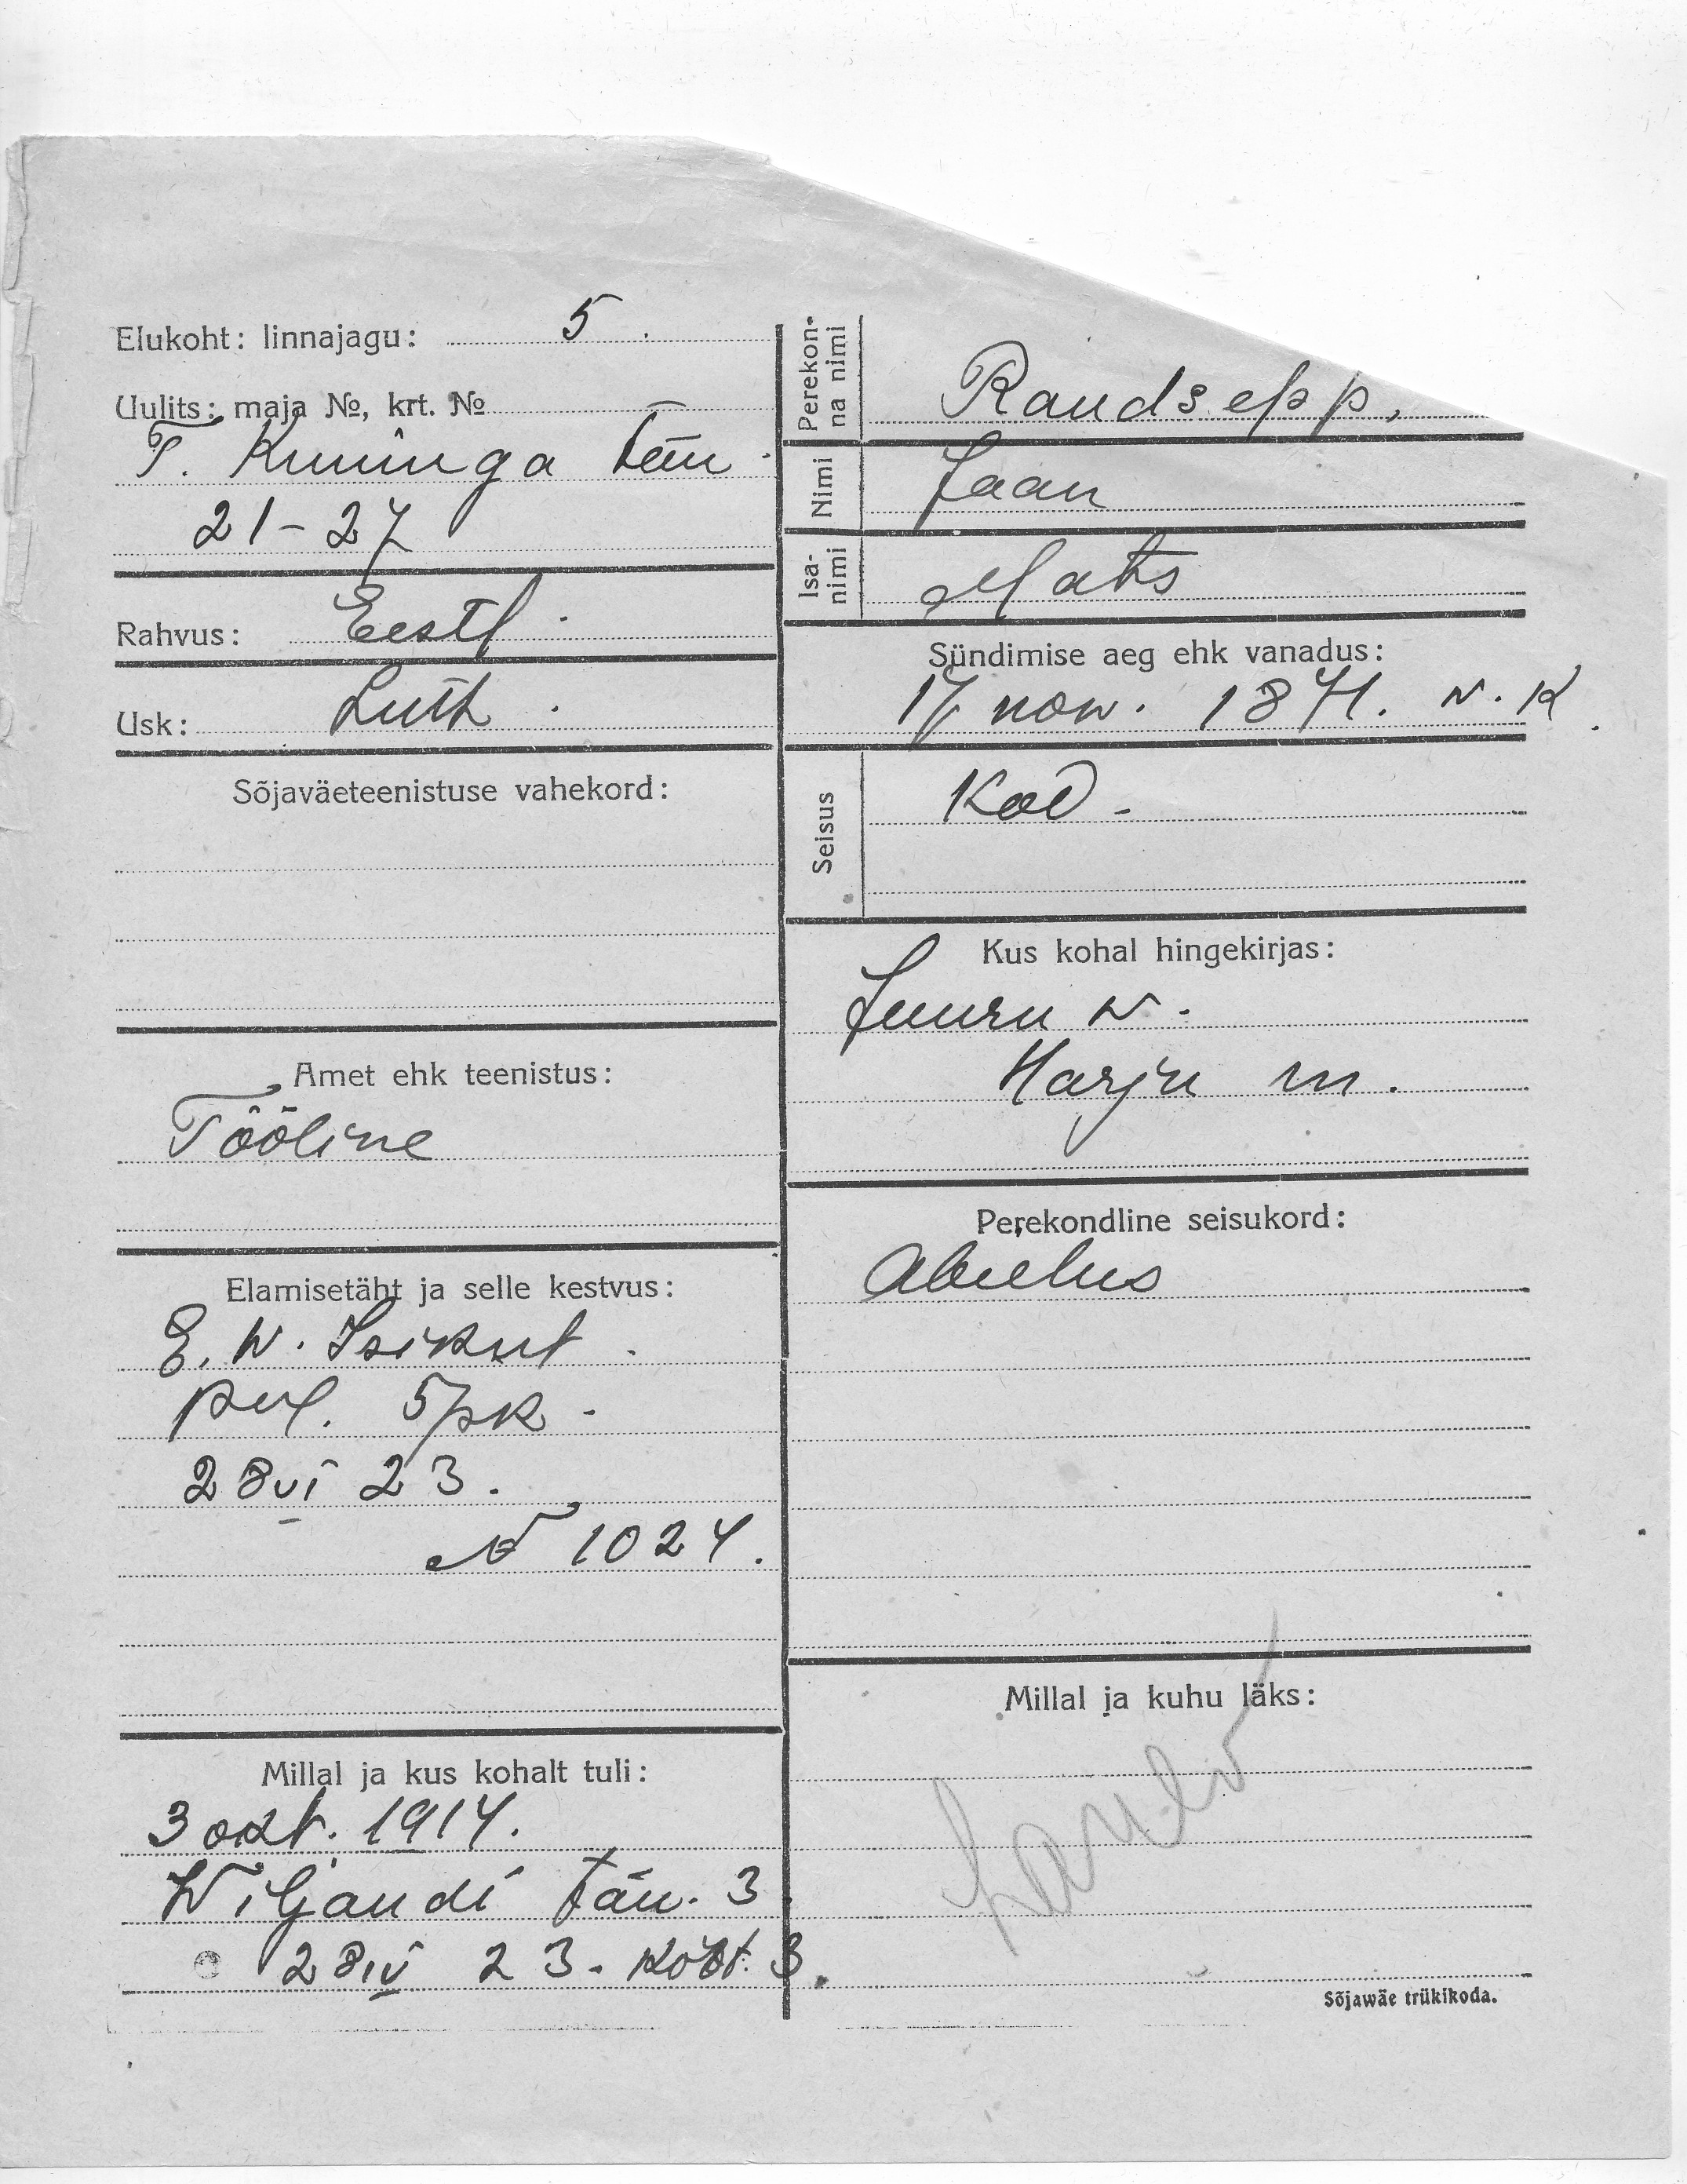 Elukoht: linnajagu: 5.
Uulits: maja №, krt. №
T. Kuninga tän.
21-27
Rahvus: Eestl.
Usk: Luth.
Sõjaväeteenistuse vahekord:
Amet ehk teenistus:
Tööline
Elamisetäht ja selle kestvus:
E. W. Isikut.
5 pk.
28 VI 23.
N 1024.
Millal ja kus kohalt tuli:
3 okt. 1914.
Wiljandi tän. 3.
28 IV 23.
Perekonna nimi Raudsepp.
Nimi Jaan
Isanimi Mats
Sündimise aeg ehk vanadus:
17 now. 1871. w. k.
Seisus Kod.
Kus kohal hingekirjas:
Juuru w.
Harju m.
Perekondline seisukord:
Abielus
Millal ja kuhu läks:
Sõjawäe trükikoda.